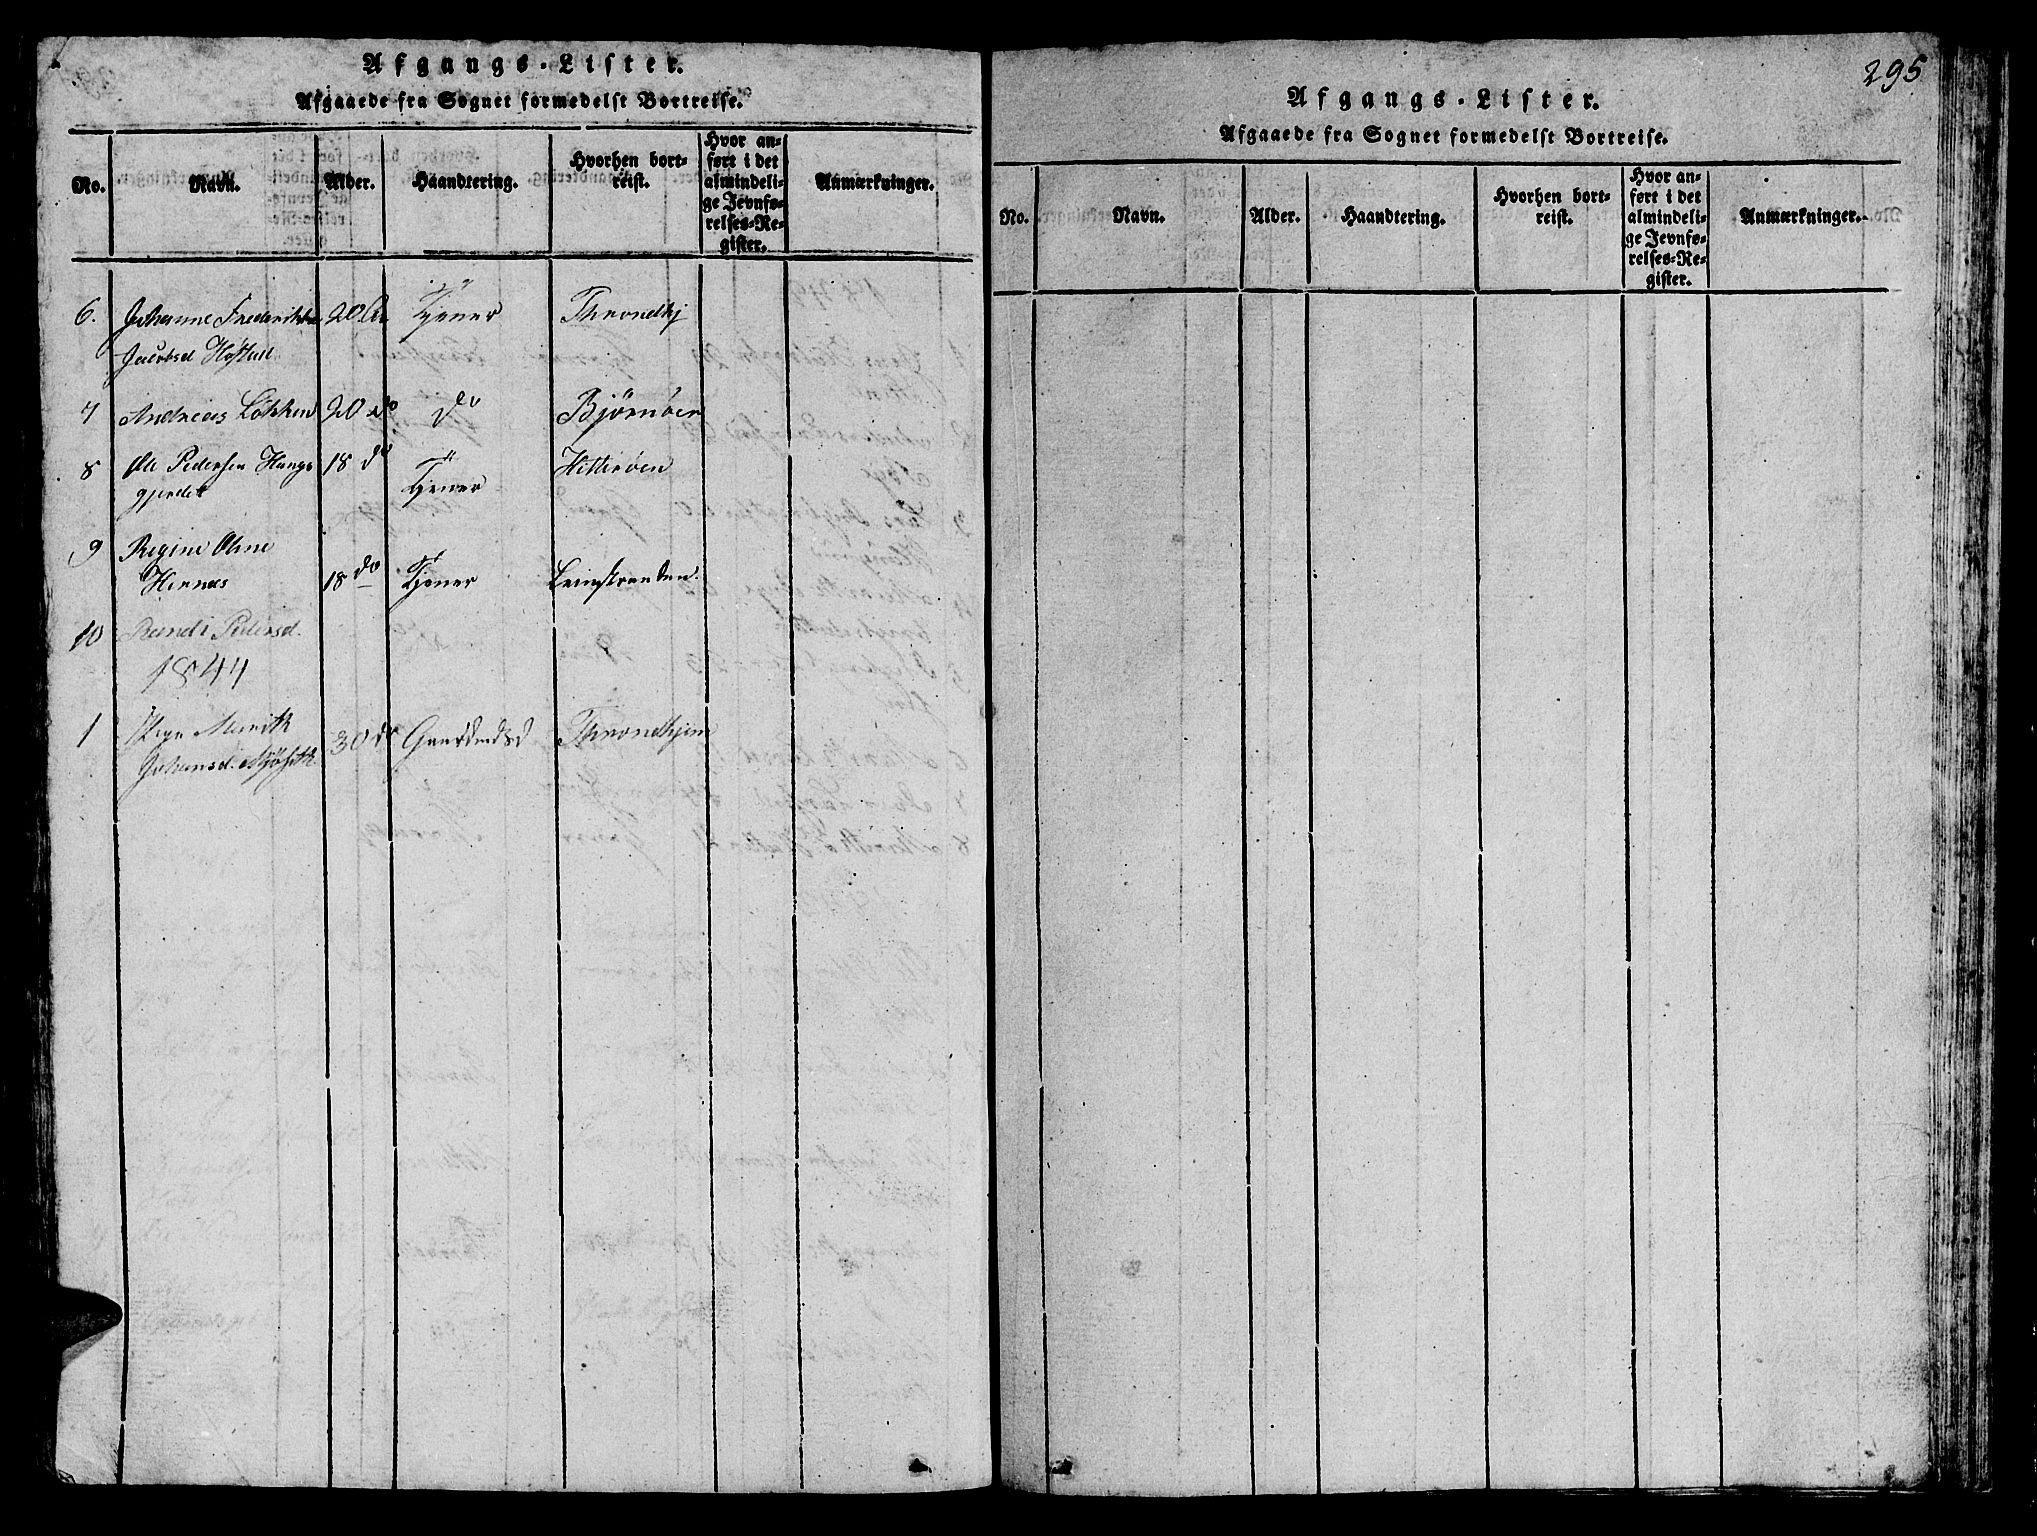 Afgangs-Lister.
Afgaaede fra Sognet formedelst Bortreise.
No. Navn. Alder. Haandtering. Hvorhen bort-reist. Hvor an-ført i det almindeli-ge Jevnfø-relses-Re-gister. Anmærkninger.
6. Johanne Frederikke 20 Aar Tjener Throndhj
Jacobsd Hofstad
7 Andreas Løkken 20 do do Bjørnøer
8 Ole Pedersen Haugs 18 do Tjener Hitterøen
gjerdet
9 Regine Oline
Hernæs 18 do Tjener Leinstranden.
10 Randi Pedersd.
1844
1 Marith 30 do Gaardmdsd Throndhjem
Johansd.
295.
Afgangs-Lister.
Afgaaede fra Sognet formedelst Bortreise.
No. Navn. Alder. Haandtering. Hvorhen bort-reist. Hvor an-ført i det almindeli-ge Jevnfø-relses-Re-gister. Anmærkninger.